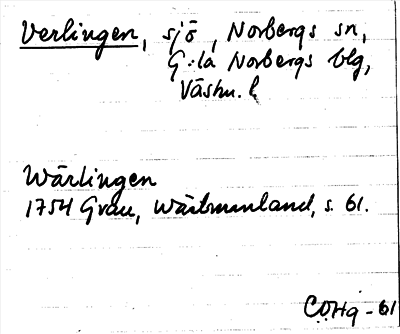 Verlingen, sjö, Norbergs sn,
G:la Norbergs blg,
Västm. l.
Wärlingen
1754 Grau, Wästmanland, s. 61.
COHg -61